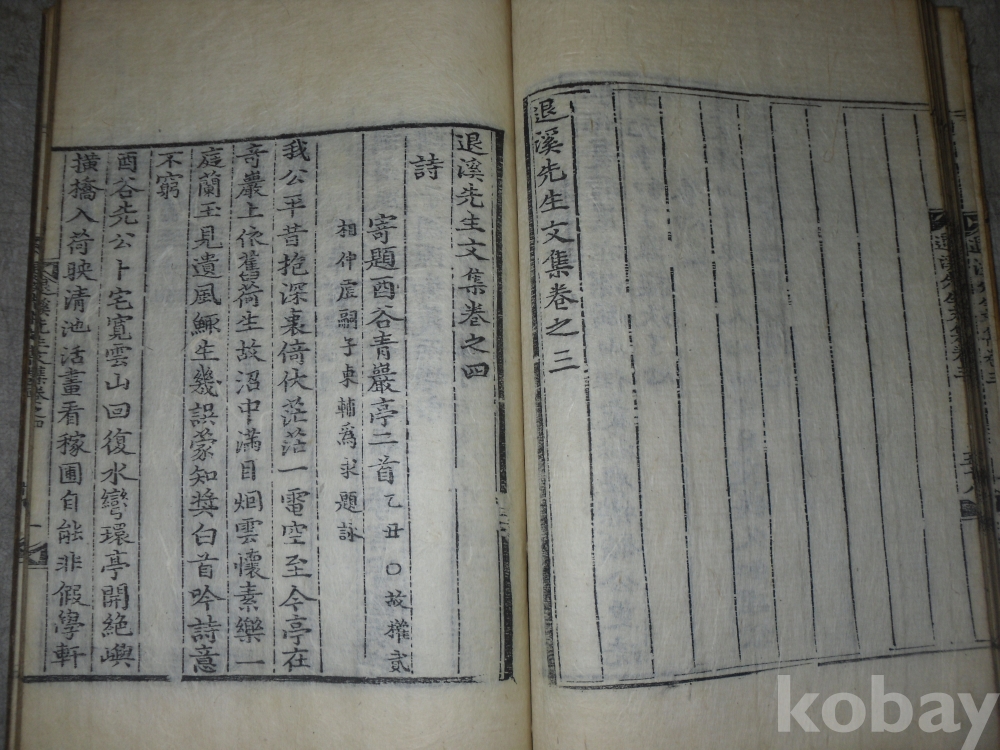 退溪先生文集卷之三
退溪先生文集卷之四
詩
寄題酉谷青巖亭二首乙丑○故權貳
相仲虛嗣子東輔爲求題詠
我公平昔抱深衷倚伏茫茫一電空至今亭在
奇巖上依舊荷生故沼中滿目烟雲懷素樂一
庭蘭玉見遺風鯫生幾誤蒙知獎白首吟詩意
不窮
酉谷先公卜宅寬雲山回復水彎環亭開絶嶼
橫橋入荷映清池活畫看稼圃自能非假學軒
kobay